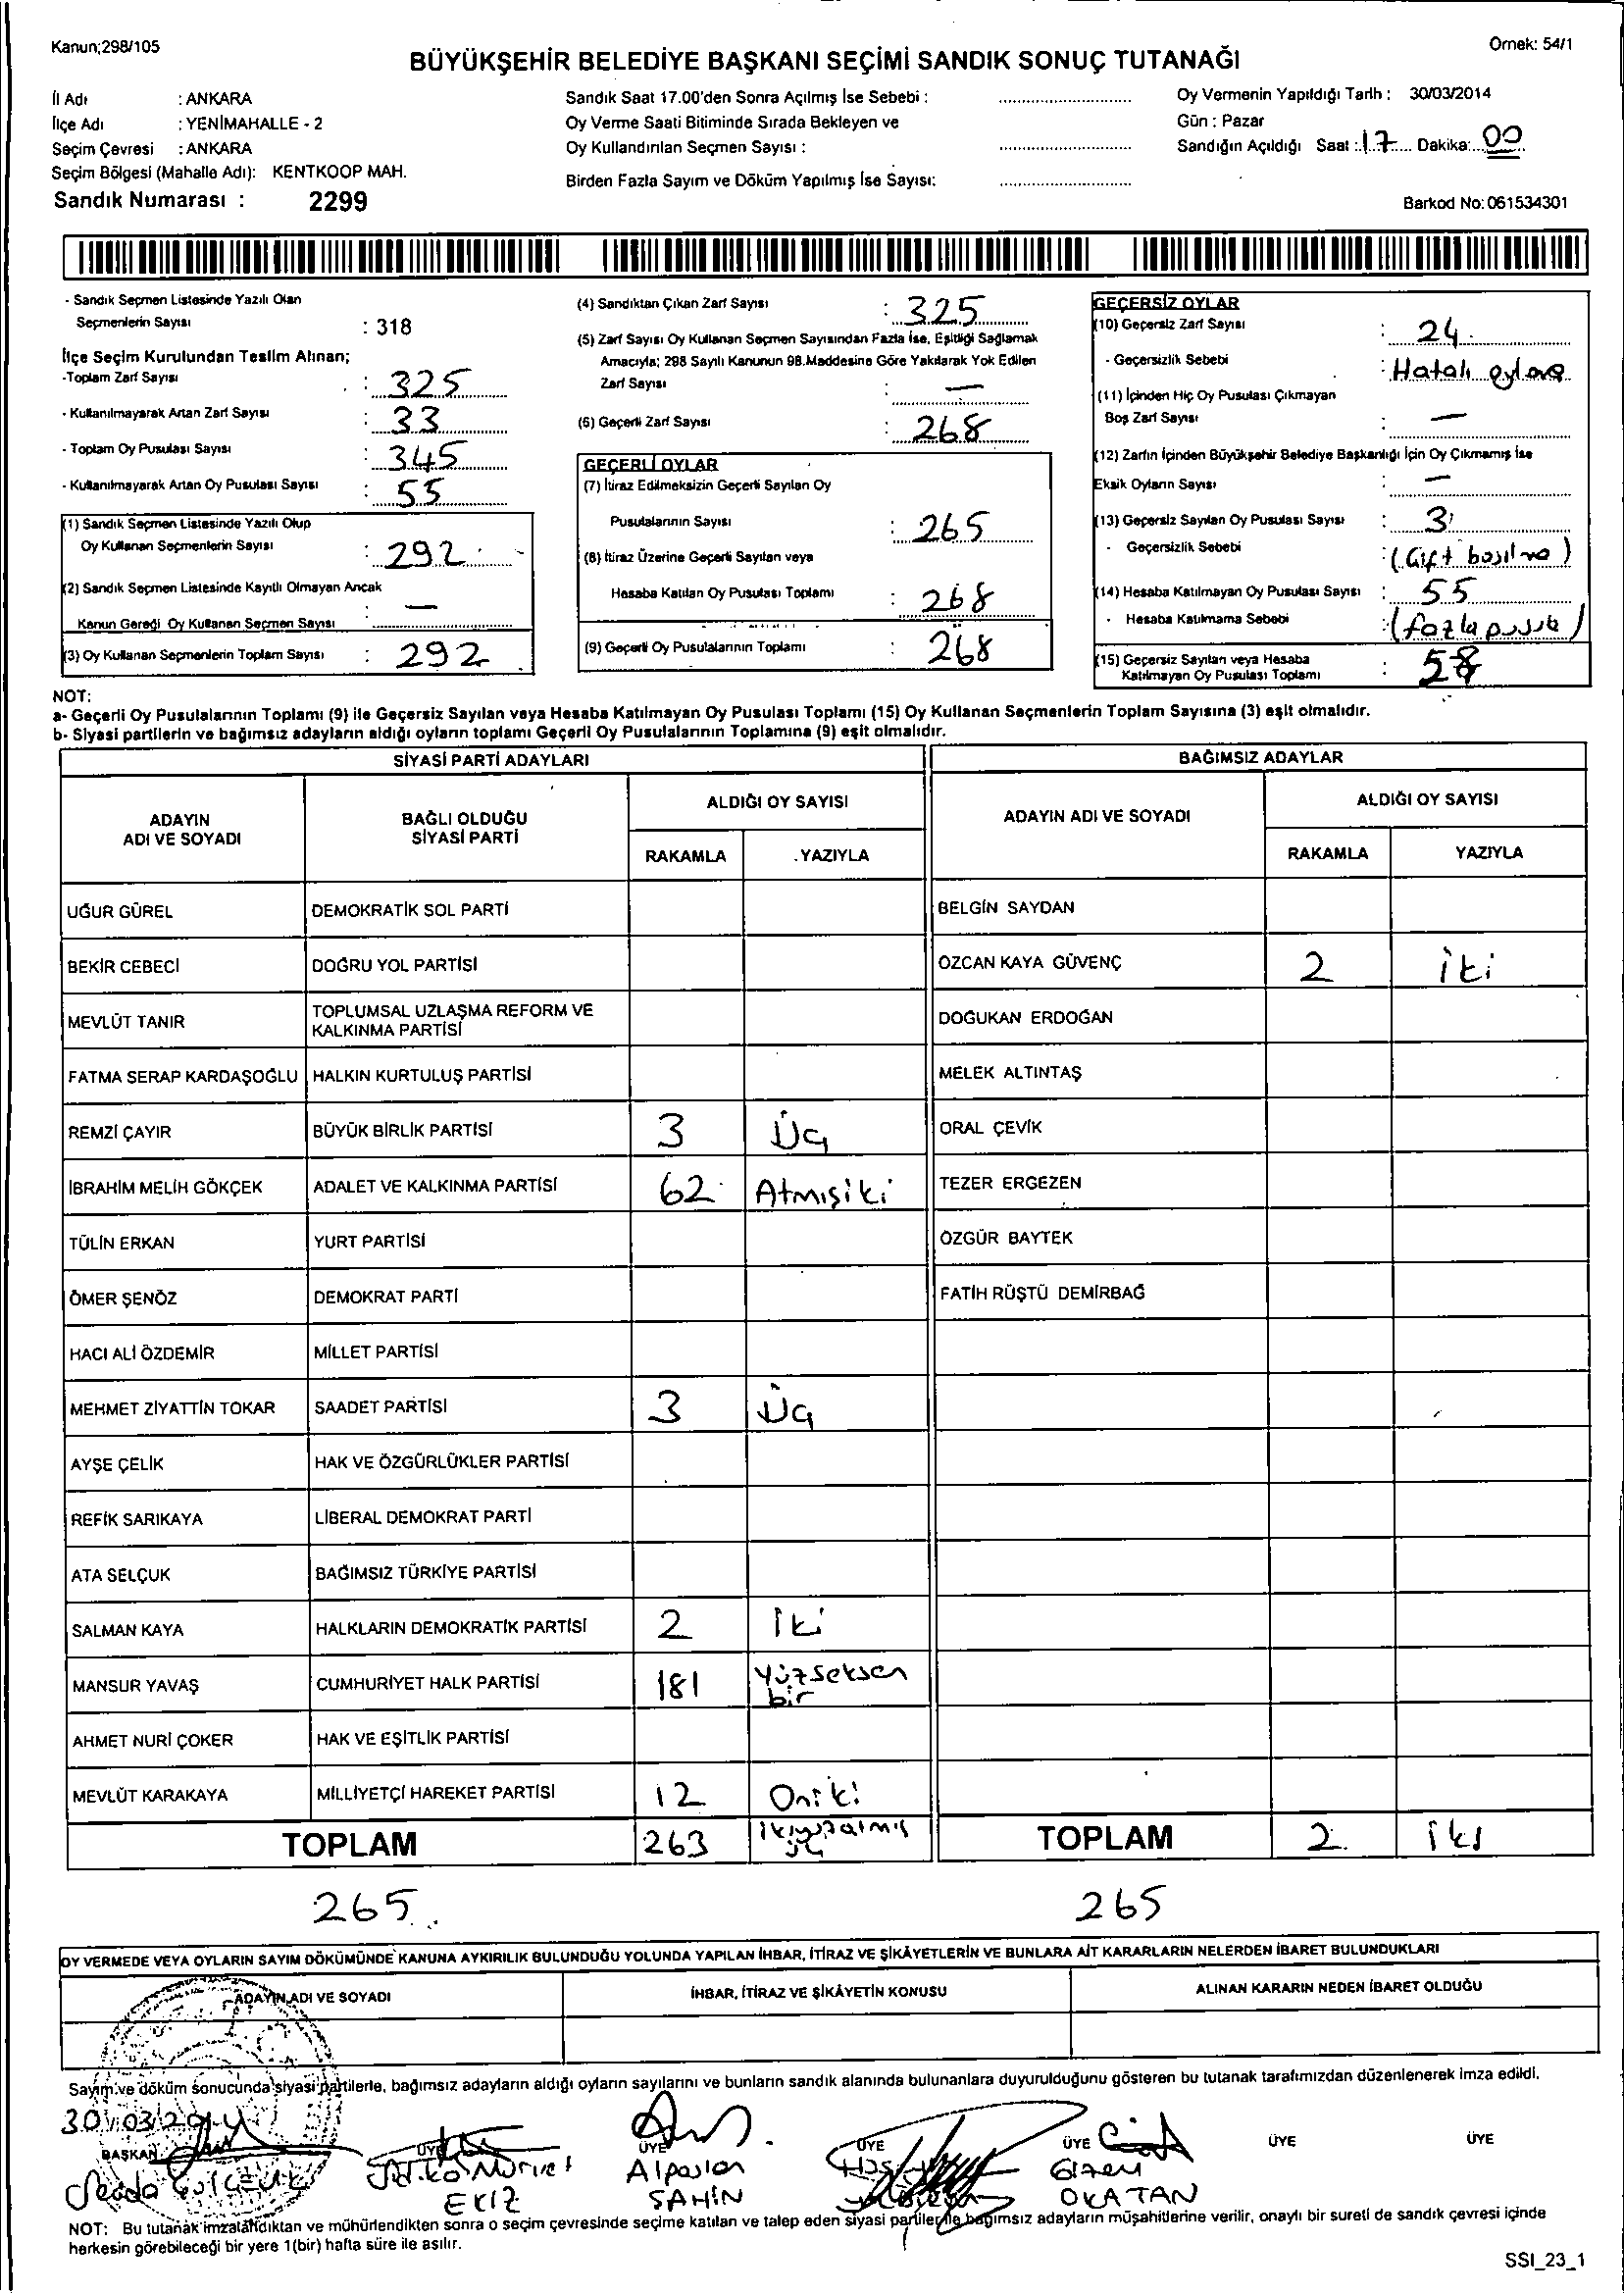 Kanun;298/105
Örnek: 54/1
BÜYÜKŞEHİR BELEDİYE BAŞKANI SEÇİMİ SANDIK SONUÇ TUTANAĞI
İl Adı : ANKARA
İlçe Adı : YENİMAHALLE - 2
Seçim Çevresi : ANKARA
Seçim Bölgesi (Mahalle Adı): KENTKOOP MAH.
Sandık Numarası : 2299
Sandık Saat 17.00'den Sonra Açılmış İse Sebebi :
Oy Verme Saati Bitiminde Sırada Bekleyen ve
Oy Kullandırılan Seçmen Sayısı :
Birden Fazla Sayım ve Döküm Yapılmış İse Sayısı:
Oy Vermenin Yapıldığı Tarih : 30/03/2014
Gün : Pazar
Sandığın Açıldığı Saat : 17 Dakika: 00
Barkod No: 061534301
- Sandık Seçmen Listesinde Yazılı Olan
Seçmenlerin Sayısı : 318
İlçe Seçim Kurulundan Teslim Alınan;
-Toplam Zarf Sayısı : 325
- Kullanılmayarak Artan Zarf Sayısı : 33
- Toplam Oy Pusulası Sayısı : 345
- Kullanılmayarak Artan Oy Pusulası Sayısı : 55
(1) Sandık Seçmen Listesinde Yazılı Olup
Oy Kullanan Seçmenlerin Sayısı : 292
(2) Sandık Seçmen Listesinde Kayıtlı Olmayan Ancak
Kanun Gereği Oy Kullanan Seçmen Sayısı : —
(3) Oy Kullanan Seçmenlerin Toplam Sayısı : 292
(4) Sandıktan Çıkan Zarf Sayısı : 325
(5) Zarf Sayısı Oy Kullanan Seçmen Sayısından Fazla İse, Eşitliği Sağlamak
Amacıyla; 298 Sayılı Kanunun 98.Maddesine Göre Yakılarak Yok Edilen
Zarf Sayısı : —
(6) Geçerli Zarf Sayısı : 268
GEÇERLİ OYLAR
(7) İtiraz Edilmeksizin Geçerli Sayılan Oy
Pusulalarının Sayısı : 265
(8) İtiraz Üzerine Geçerli Sayılan veya
Hesaba Katılan Oy Pusulası Toplamı : 268
(9) Geçerli Oy Pusulalarının Toplamı : 268
GEÇERSİZ OYLAR
(10) Geçersiz Zarf Sayısı : 24
- Geçersizlik Sebebi : Hatalı oylar
(11) İçinden Hiç Oy Pusulası Çıkmayan
Boş Zarf Sayısı : —
(12) Zarfın İçinden Büyükşehir Belediye Başkanlığı İçin Oy Çıkmamış İse
Eksik Oyların Sayısı : —
(13) Geçersiz Sayılan Oy Pusulası Sayısı : 3
- Geçersizlik Sebebi : (Çift basılma)
(14) Hesaba Katılmayan Oy Pusulası Sayısı : 55
- Hesaba Katılmama Sebebi : (fazla pusula)
(15) Geçersiz Sayılan veya Hesaba
Katılmayan Oy Pusulası Toplamı : 58
NOT:
a- Geçerli Oy Pusulalarının Toplamı (9) ile Geçersiz Sayılan veya Hesaba Katılmayan Oy Pusulası Toplamı (15) Oy Kullanan Seçmenlerin Toplam Sayısına (3) eşit olmalıdır.
b- Siyasi partilerin ve bağımsız adayların aldığı oyların toplamı Geçerli Oy Pusulalarının Toplamına (9) eşit olmalıdır.
SİYASİ PARTİ ADAYLARI
BAĞIMSIZ ADAYLAR
ADAYIN
ADI VE SOYADI
BAĞLI OLDUĞU
SİYASİ PARTİ
ALDIĞI OY SAYISI
RAKAMLA YAZIYLA
ADAYIN ADI VE SOYADI
ALDIĞI OY SAYISI
RAKAMLA YAZIYLA
UĞUR GÜREL DEMOKRATİK SOL PARTİ
BELGİN SAYDAN
BEKİR CEBECİ DOĞRU YOL PARTİSİ
ÖZCAN KAYA GÜVENÇ 2 iki
MEVLÜT TANIR TOPLUMSAL UZLAŞMA REFORM VE
KALKINMA PARTİSİ
DOĞUKAN ERDOĞAN
FATMA SERAP KARDAŞOĞLU HALKIN KURTULUŞ PARTİSİ
MELEK ALTINTAŞ
REMZİ ÇAYIR BÜYÜK BİRLİK PARTİSİ 3 Üç
ORAL ÇEVİK
İBRAHİM MELİH GÖKÇEK ADALET VE KALKINMA PARTİSİ 62 Atmışiki
TEZER ERGEZEN
TÜLİN ERKAN YURT PARTİSİ
ÖZGÜR BAYTEK
ÖMER ŞENÖZ DEMOKRAT PARTİ
FATİH RÜŞTÜ DEMİRBAĞ
HACI ALİ ÖZDEMİR MİLLET PARTİSİ
MEHMET ZİYATTİN TOKAR SAADET PARTİSİ 3 Üç
AYŞE ÇELİK HAK VE ÖZGÜRLÜKLER PARTİSİ
REFİK SARIKAYA LİBERAL DEMOKRAT PARTİ
ATA SELÇUK BAĞIMSIZ TÜRKİYE PARTİSİ
SALMAN KAYA HALKLARIN DEMOKRATİK PARTİSİ 2 iki
MANSUR YAVAŞ CUMHURİYET HALK PARTİSİ 181 Yüzseksen
bir
AHMET NURİ ÇOKER HAK VE EŞİTLİK PARTİSİ
MEVLÜT KARAKAYA MİLLİYETÇİ HAREKET PARTİSİ 12 Oniki
TOPLAM 263 ikiyüzatmış
üç
TOPLAM 2 iki
265
265
OY VERMEDE VEYA OYLARIN SAYIM DÖKÜMÜNDE KANUNA AYKIRILIK BULUNDUĞU YOLUNDA YAPILAN İHBAR, İTİRAZ VE ŞİKÂYETLERİN VE BUNLARA AİT KARARLARIN NELERDEN İBARET BULUNDUKLARI
ADAYIN ADI VE SOYADI
İHBAR, İTİRAZ VE ŞİKÂYETİN KONUSU
ALINAN KARARIN NEDEN İBARET OLDUĞU
Sayım ve döküm sonucunda siyasi partilerle, bağımsız adayların aldığı oyların sayılarını ve bunların sandık alanında bulunanlara duyurulduğunu gösteren bu tutanak tarafımızdan düzenlenerek imza edildi.
30/03/2014
BAŞKAN ÜYE ÜYE ÜYE ÜYE ÜYE ÜYE
Alpaslan
ŞAHİN
EKİZ
Gizem
OKATAN
NOT: Bu tutanak imzalandıktan ve mühürlendikten sonra o seçim çevresinde seçime katılan ve talep eden siyasi partiler ile bağımsız adayların müşahitlerine verilir, onaylı bir sureti de sandık çevresi içinde
herkesin görebileceği bir yere 1(bir) hafta süre ile asılır.
SSI_23_1